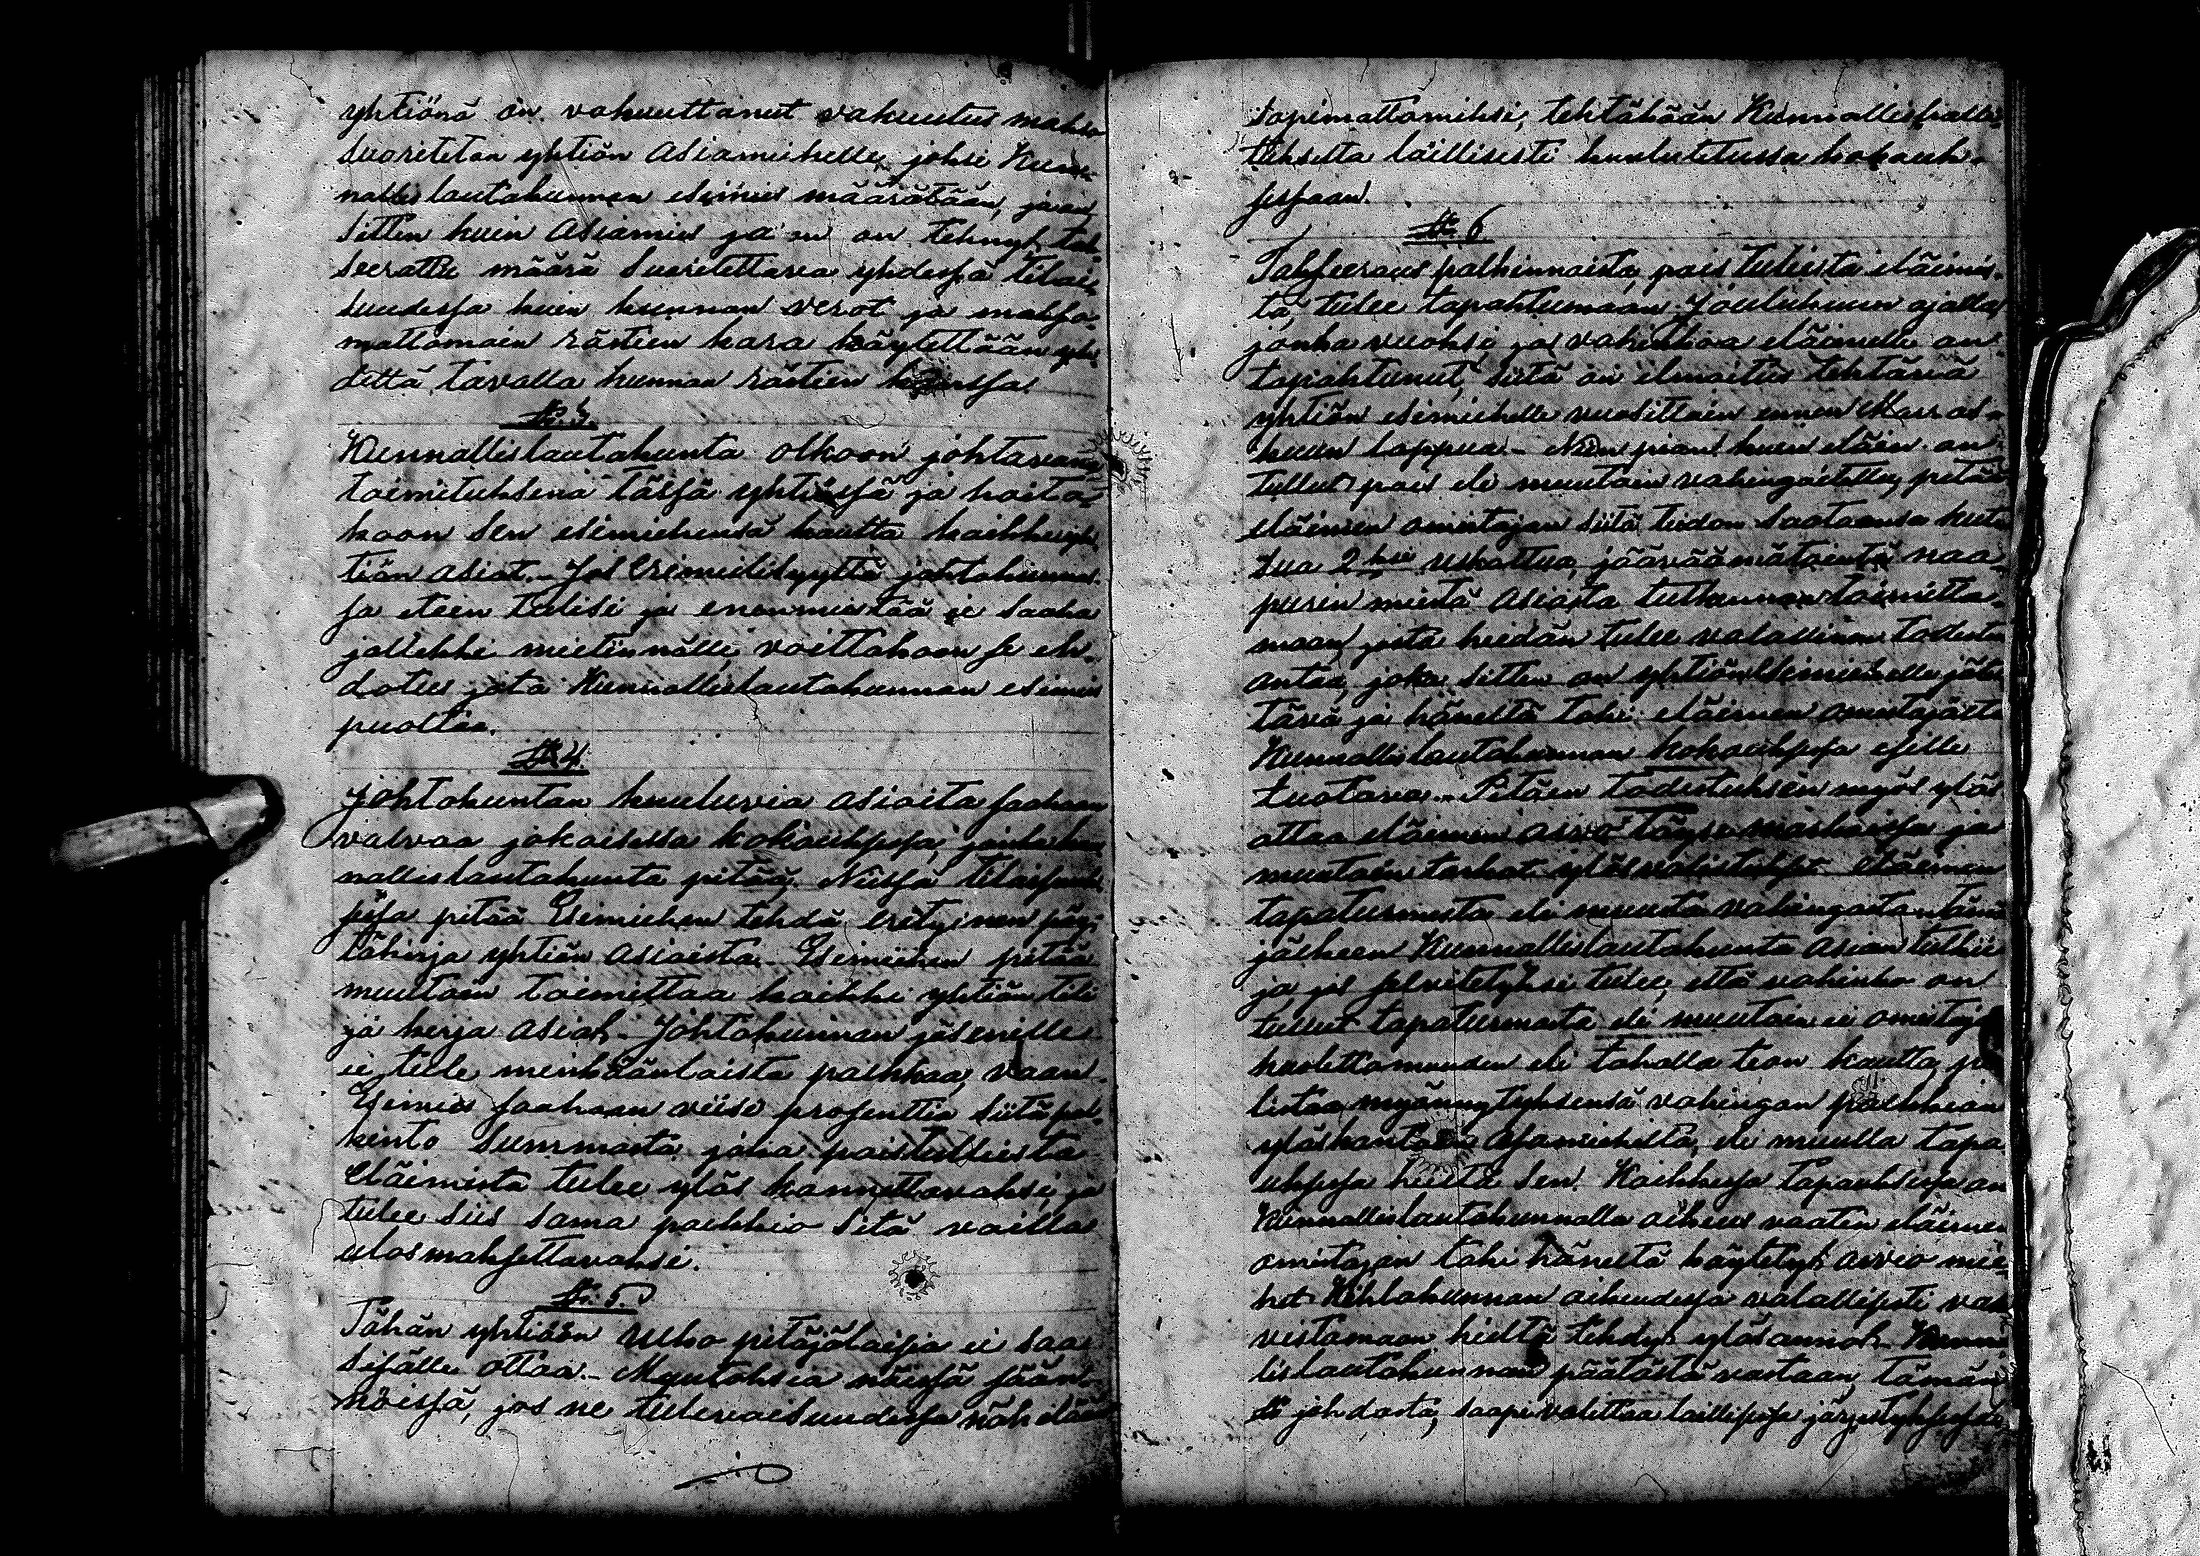 yhtiönä on vakuuttanut vakuutus makso
suoritetan yhtiön asiamiehelle, joksi Kun-
nallislautakunnan esimies määrätään, ja on
sitten kuin asiamies ja on on tehnyt, tak-
seerattu määrä suoritettava yhdessä tilai-
suudessa kuin kunnan verot ja maksa-
mattomain rästien kera käytettään yh-
dellä tavalla kunnan rästien kanssa.
§. 3.
Kunnallislautakunta olkoon johtavana
toimituksena tässä yhtiössä ja hoita-
koon sen esimiehensä kautta kaikki yh-
tiön asiat. - Jos Erimielisyyttä johtokunnas-
sa eteen tulisi ja enemmistöä ei saaha
jollekki mietinnölle, voittakoon se eh-
dotus jota Kunnallislautakunnan esimies
puoltaa.
§ 4.
Johtokuntan kuuluvia asioita saahaan
valvoa jokaisessa kokouksessa, jonka kun-
nallislautakunta pitää. Niissä tilaisuuk-
sissa pitää Esimiehen tehdä erityinen pöy-
täkirja yhtiön asioista. - Esimiehen pitää
muutoin toimittaa kaikki yhtiön tili
ja kirja asiat. - Johtokunnan jäsenille
ei tule minkäänlaista palkkaa, vaan
Esimies saakaan viisi prosenttia siitä pal-
kinto summasta, joka poistulleista
Eläimistä tulee ylös kannettavaksi, ja
tulee siis sama palkkio sitä vailla
ulosmaksettavaksi.
§. 5.
Tähän yhtiöön ulko pitäjäläisiä ei saa
sisälle ottaa. - Muutoksia näissä sään-
nöissä, jos ne tulevaisuudessa nähdään
sopimattomiksi, tehtäkään Kunnallishalli-
tukselta laillisesti kuulutetussa kokouk-
sessaan.
§. 6
Takseeraus palkinnoista, pois tulleista eläimis-
tä, tulee tapahtumaan Jouluhuun ajalla,
jonka vuoksi ja vahinkoa eläimelle on
tapahtunut, siitä on ilmoitus tehtävä
yhtiön esimiehelle vuosittain ennen Marras-
kuun loppua. - Niin pian kuin eläin on
tullut pois eli muutoin vahingoitettu, pitää
eläimen omistajan siitä tiedon saatuansa kutsu-
sua 2 ksi uskottua, jääväämätöintä naa-
purin miestä asiasta tutkunnon toimitta-
maan, josta heidän tulee valallinen todistus
antaa, joka sitten on yhtiön Esimiehelle jätet-
tävä ja häneltä tahi eläimen omistajalta
Kunnallislautakunnan kokouksessa esille
tuotava. - Pitäen todistuksen myös ylös
ottaa eläimen arvo täysi markoissa ja
muutoin tarkat ylösvalistukset eläimen
tapaturmasta eli muusta vahingosta. - Tämän
jälkeen Kunnallislautakunta asian tutkii
ja jos selvitetyksi tulee, että vahinko on
tullut tapaturmasta eli muutoin ei omistaja
huolettomuuden eli tahalla tion kautta, ju-
listaa myönnytyksensä vahingon palkkion
yläskantoon Asiamieheltä, eli muulla tapa-
uksessa kieltä sen. Kaikkissa tapauksissa on
Kunnallislautakunnalla oikeus vaatia eläimen
omistajan tahi häneltä käytetyt arvio mie-
het Kihlakunnan oikeudessa valallisesti vah-
vistamaan hieltä tehdyt ylösannot. - Kunnal-
lislautakunnan päätöstä vastaan, tämän
§ johdosta, saapi valittaa laillisessa järjestyksessä